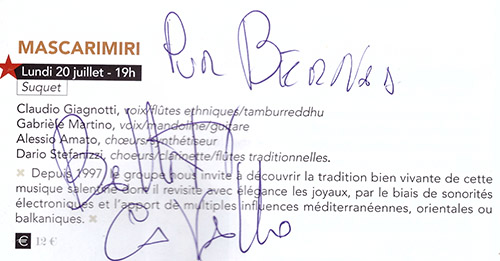 MASCARIMIRI
Pur BERNAS
Lundi 20 juillet - 19h
Suquet
Claudio Giagnotti, voix/flûtes ethniques/tamburreddhu
Gabriele Martino, voix/mandoline/guitare
Alessio Amato, chœurs/synthétiseur
Dario Stefanizzi, choeurs/clarinette/flûtes traditionnelles.
Depuis 1997, le groupe nous invite à découvrir la tradition bien vivante de cette
musique salentine dont il revisite avec élégance les joyaux, par le biais de sonorités
électroniques et l'apport de multiples influences méditerranéennes, orientales ou
balkaniques.
€ 12 €